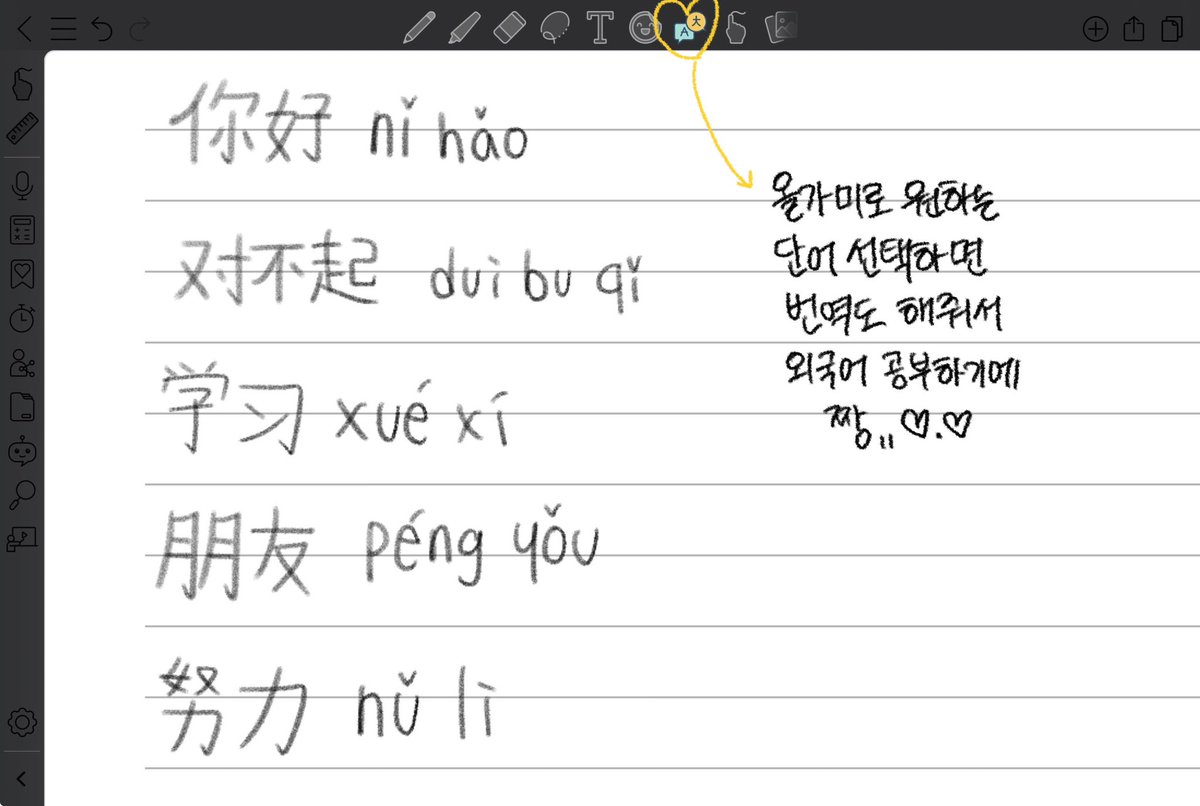 T
A 大
你好 nǐ hǎo
对不起 duì bu qǐ
学习 xué xí
朋友 péng yǒu
努力 nǔ lì
올가미로 원하는
단어 선택하면
번역도 해줘서
외국어 공부하기에
짱,, ♡.♡